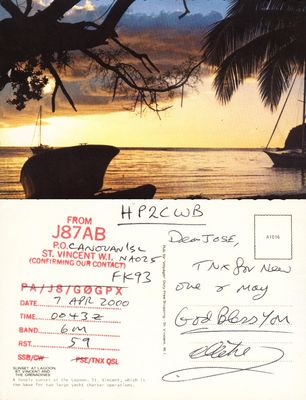 HP2CWB
FROM
J87AB
P.O. CANOUAN ISL
ST. VINCENT W.I. NA025
(CONFIRMING OUR CONTACT)
FK93
PA/J8/GØGPX
DATE 7 APR 2000
TIME 0043Z
BAND 6m
RST. 59
SSB/CW PSE/TNX QSL
SUNSET AT LAGOON,
ST VINCENT AND
THE GRENADINES
A lonely sunset at the Lagoon, St. Vincent, which is
the base for two large yacht charter operations.
A1016
Dear JOSE,
TNX for New
one & may
God Bless You